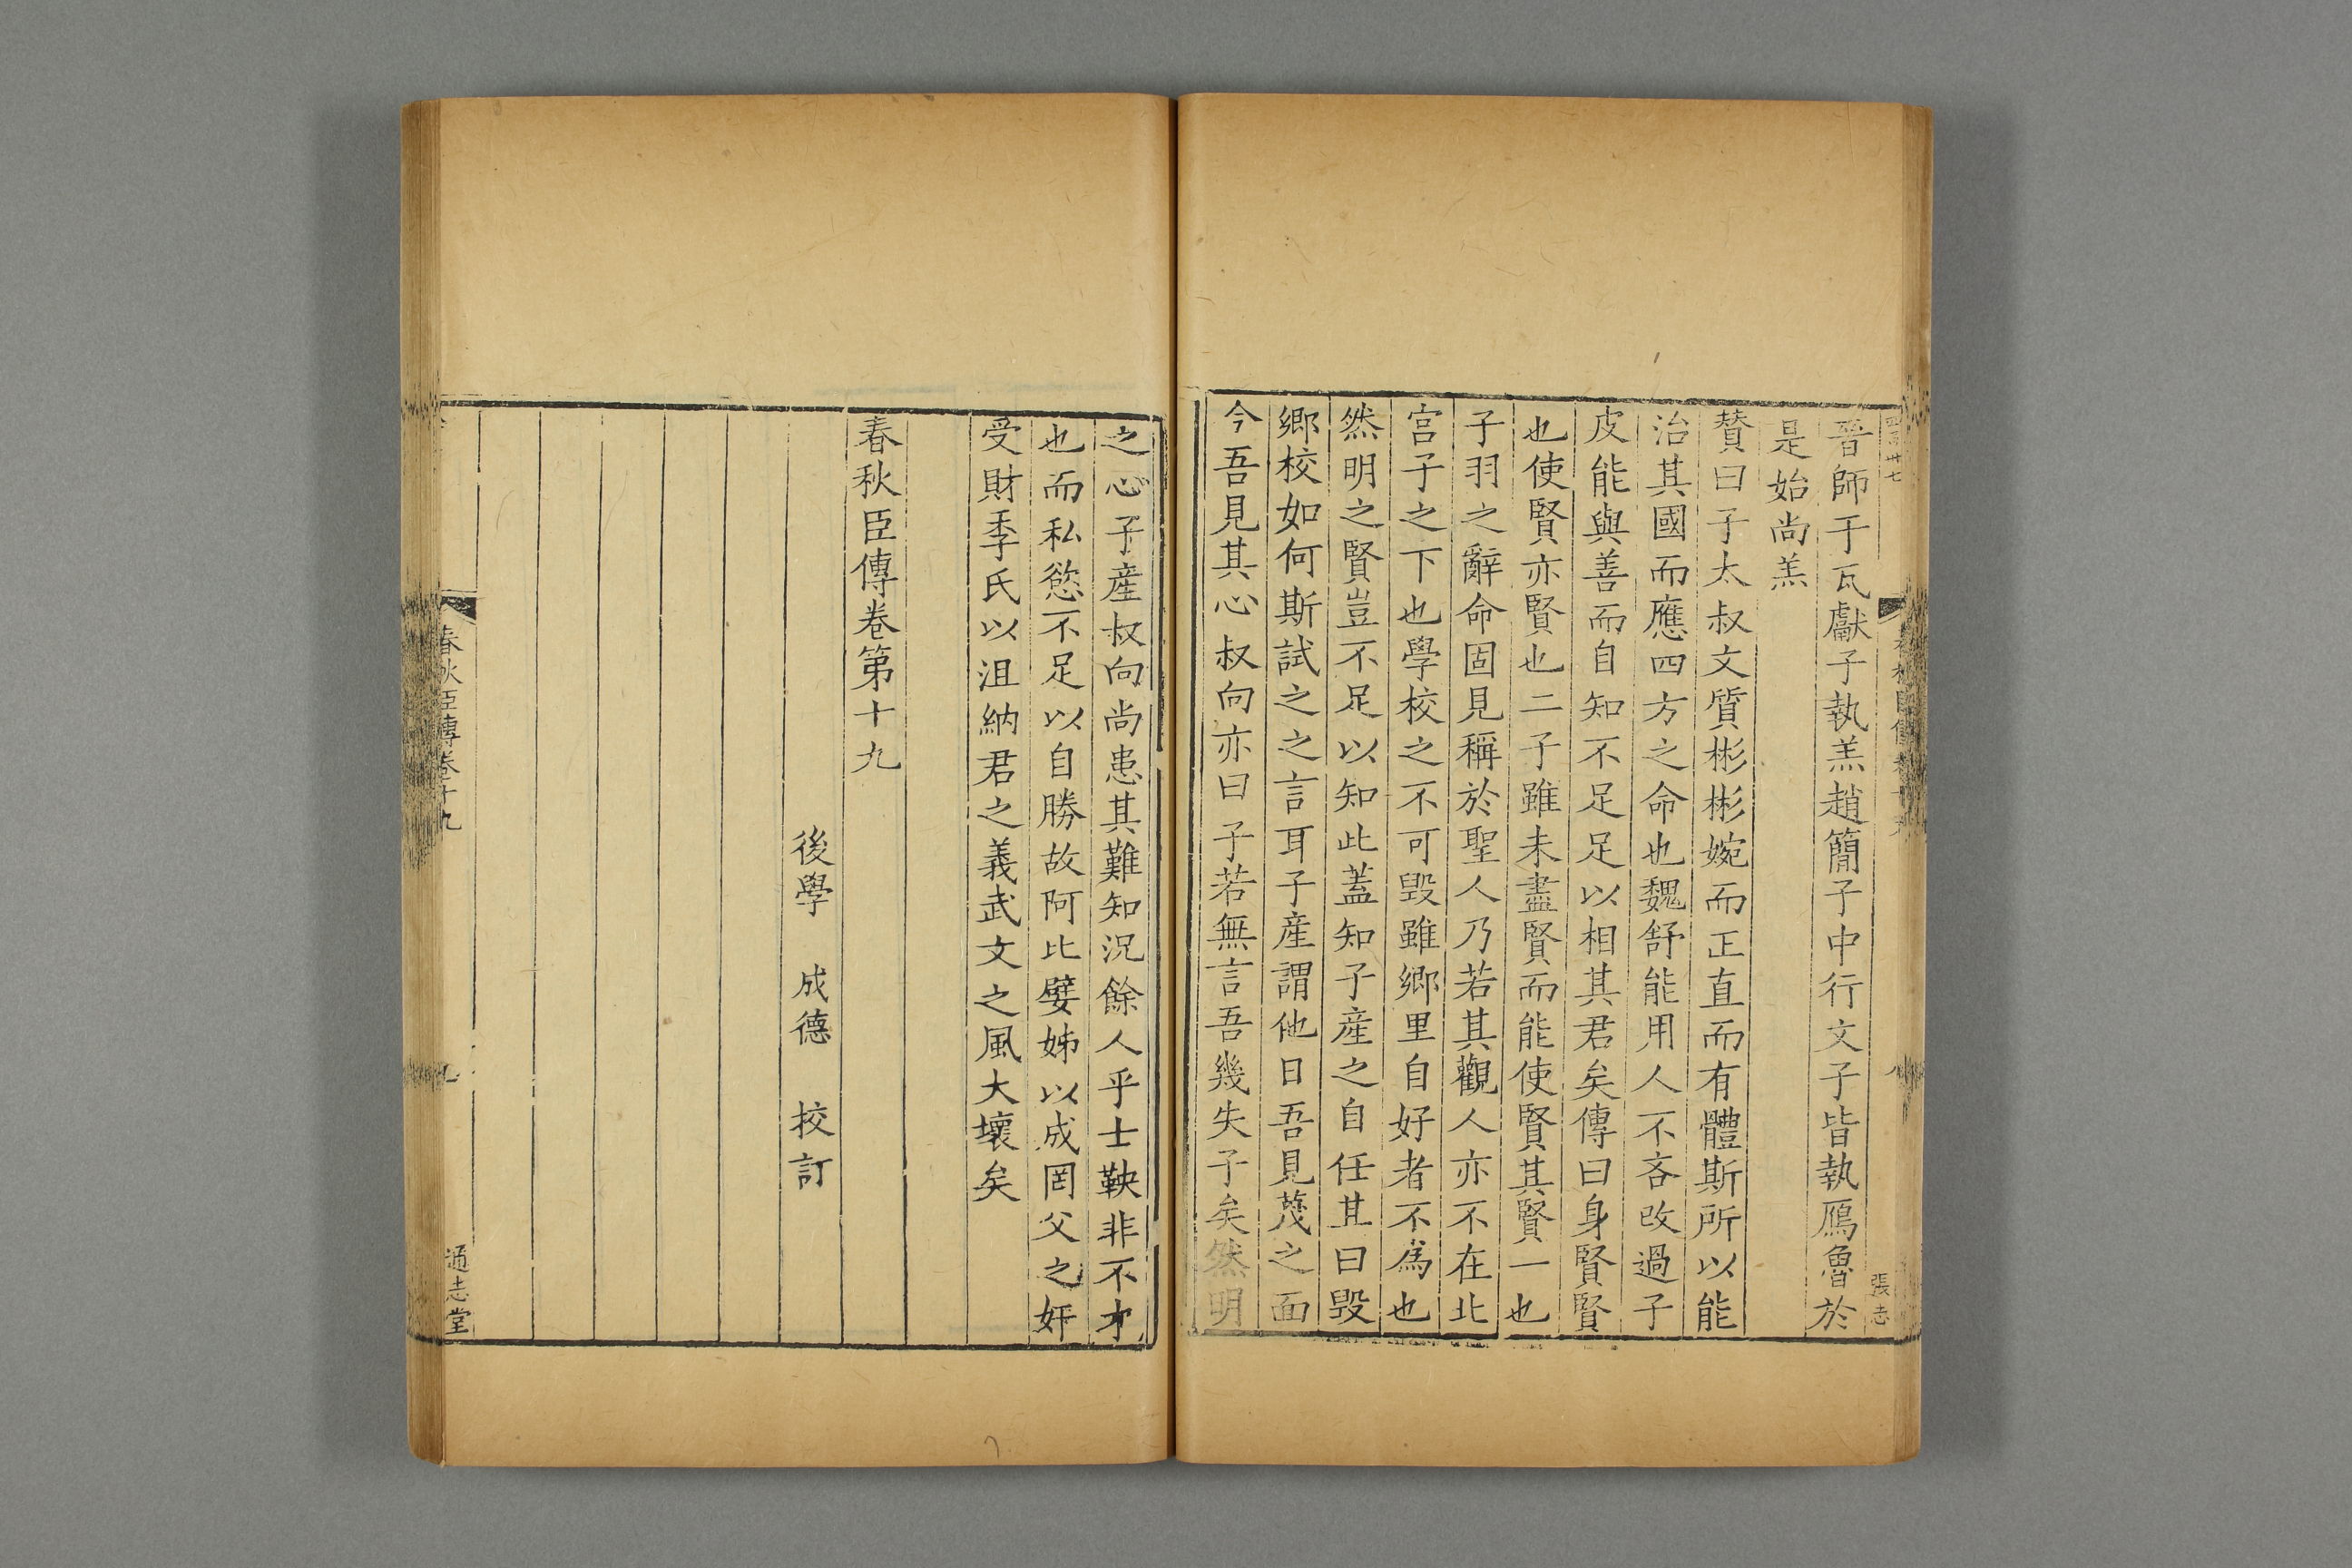 晉師于瓦獻子執羔趙簡子中行文子皆執鴈魯於
是始尚羔
賛曰子太叔文質彬彬婉而正直而有體斯所以能
治其國而應四方之命也魏舒能用人不吝改過子
皮能與善而自知不足足以相其君矣傳曰身賢賢
也使賢亦賢也二子雖未盡賢而能使賢其賢一也
子羽之辭命固見稱於聖人乃若其觀人亦不在北
宫子之下也學校之不可毁雖鄉里自好者不爲也
然明之賢豈不足以知此蓋知子産之自任其曰毁
鄉校如何斯試之之言耳子産謂他日吾見蔑之面
今吾見其心叔向亦曰子若無言吾幾失子矣然明
之心子産叔向尚患其難知況餘人乎士鞅非不才
也而私慾不足以自勝故阿比嬖姊以成罔父之奸
受財季氏以沮納君之義武文之風大壞矣
春秋臣傳卷第十九
後學 成德 校訂
春秋臣傳卷十九
通志堂
張志